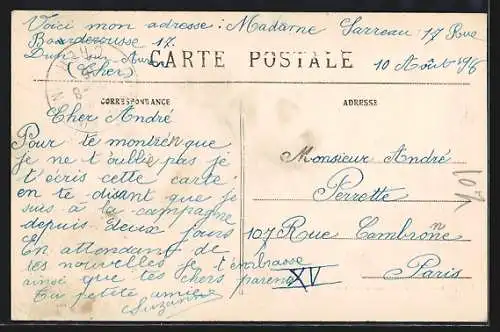 Voici mon adresse : Madame Sarreau 17 Rue
17.
Dun sur Auron
(Cher)
CARTE POSTALE
10 Août
CORRESPONDANCE
ADRESSE
Cher André
Pour te montrer que
je ne t'oublie pas je
t'écris cette carte
en te disant que je
suis à la campagne
depuis deux jours
En attendant de
tes nouvelles je t'embrasse
ainsi que tes chers parents
Ta petite amie
Suzanne
Monsieur André
Perrotte
107 Rue Cambronne
XV
Paris